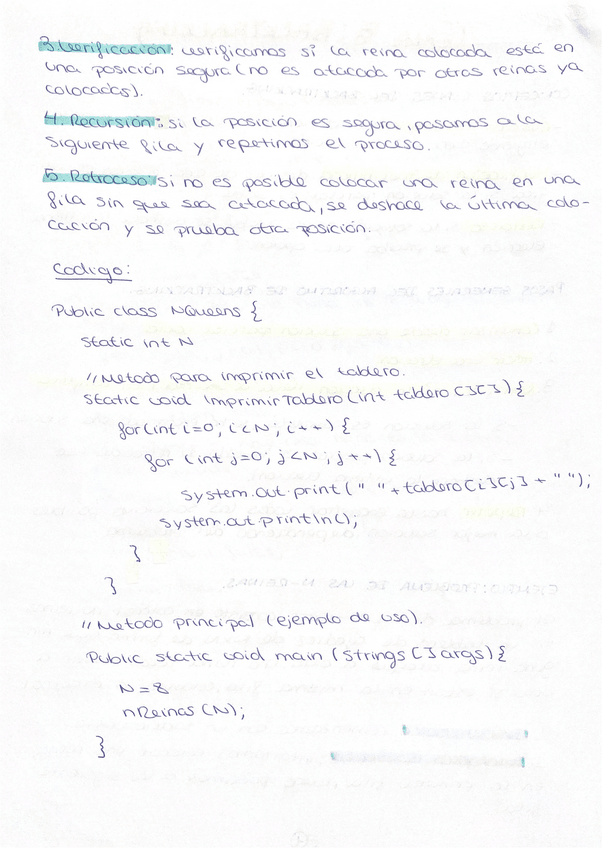 3. Verificación: verificamos si la reina colocada está en
una posición segura (no es atacada por otras reinas ya
colocadas).
4. Recursión: si la posición es segura, pasamos a la
siguiente fila y repetimos el proceso.
5. Retroceso: si no es posible colocar una reina en una
fila sin que sea atacada, se deshace la última colo-
cación y se prueba otra posición.
Codigo:
Public class NQueens {
static int N
// Metodo para imprimir el tablero.
static void ImprimirTablero (int tablero [][]) {
for (int i=0; i<N; i++) {
for (int j=0; j<N; j++) {
System.out.print (" " + tablero [i][j] + " ");
System.out.println();
}
}
// Metodo principal (ejemplo de uso).
Public static void main (Strings [] args) {
N = 8
nReinas (N);
}